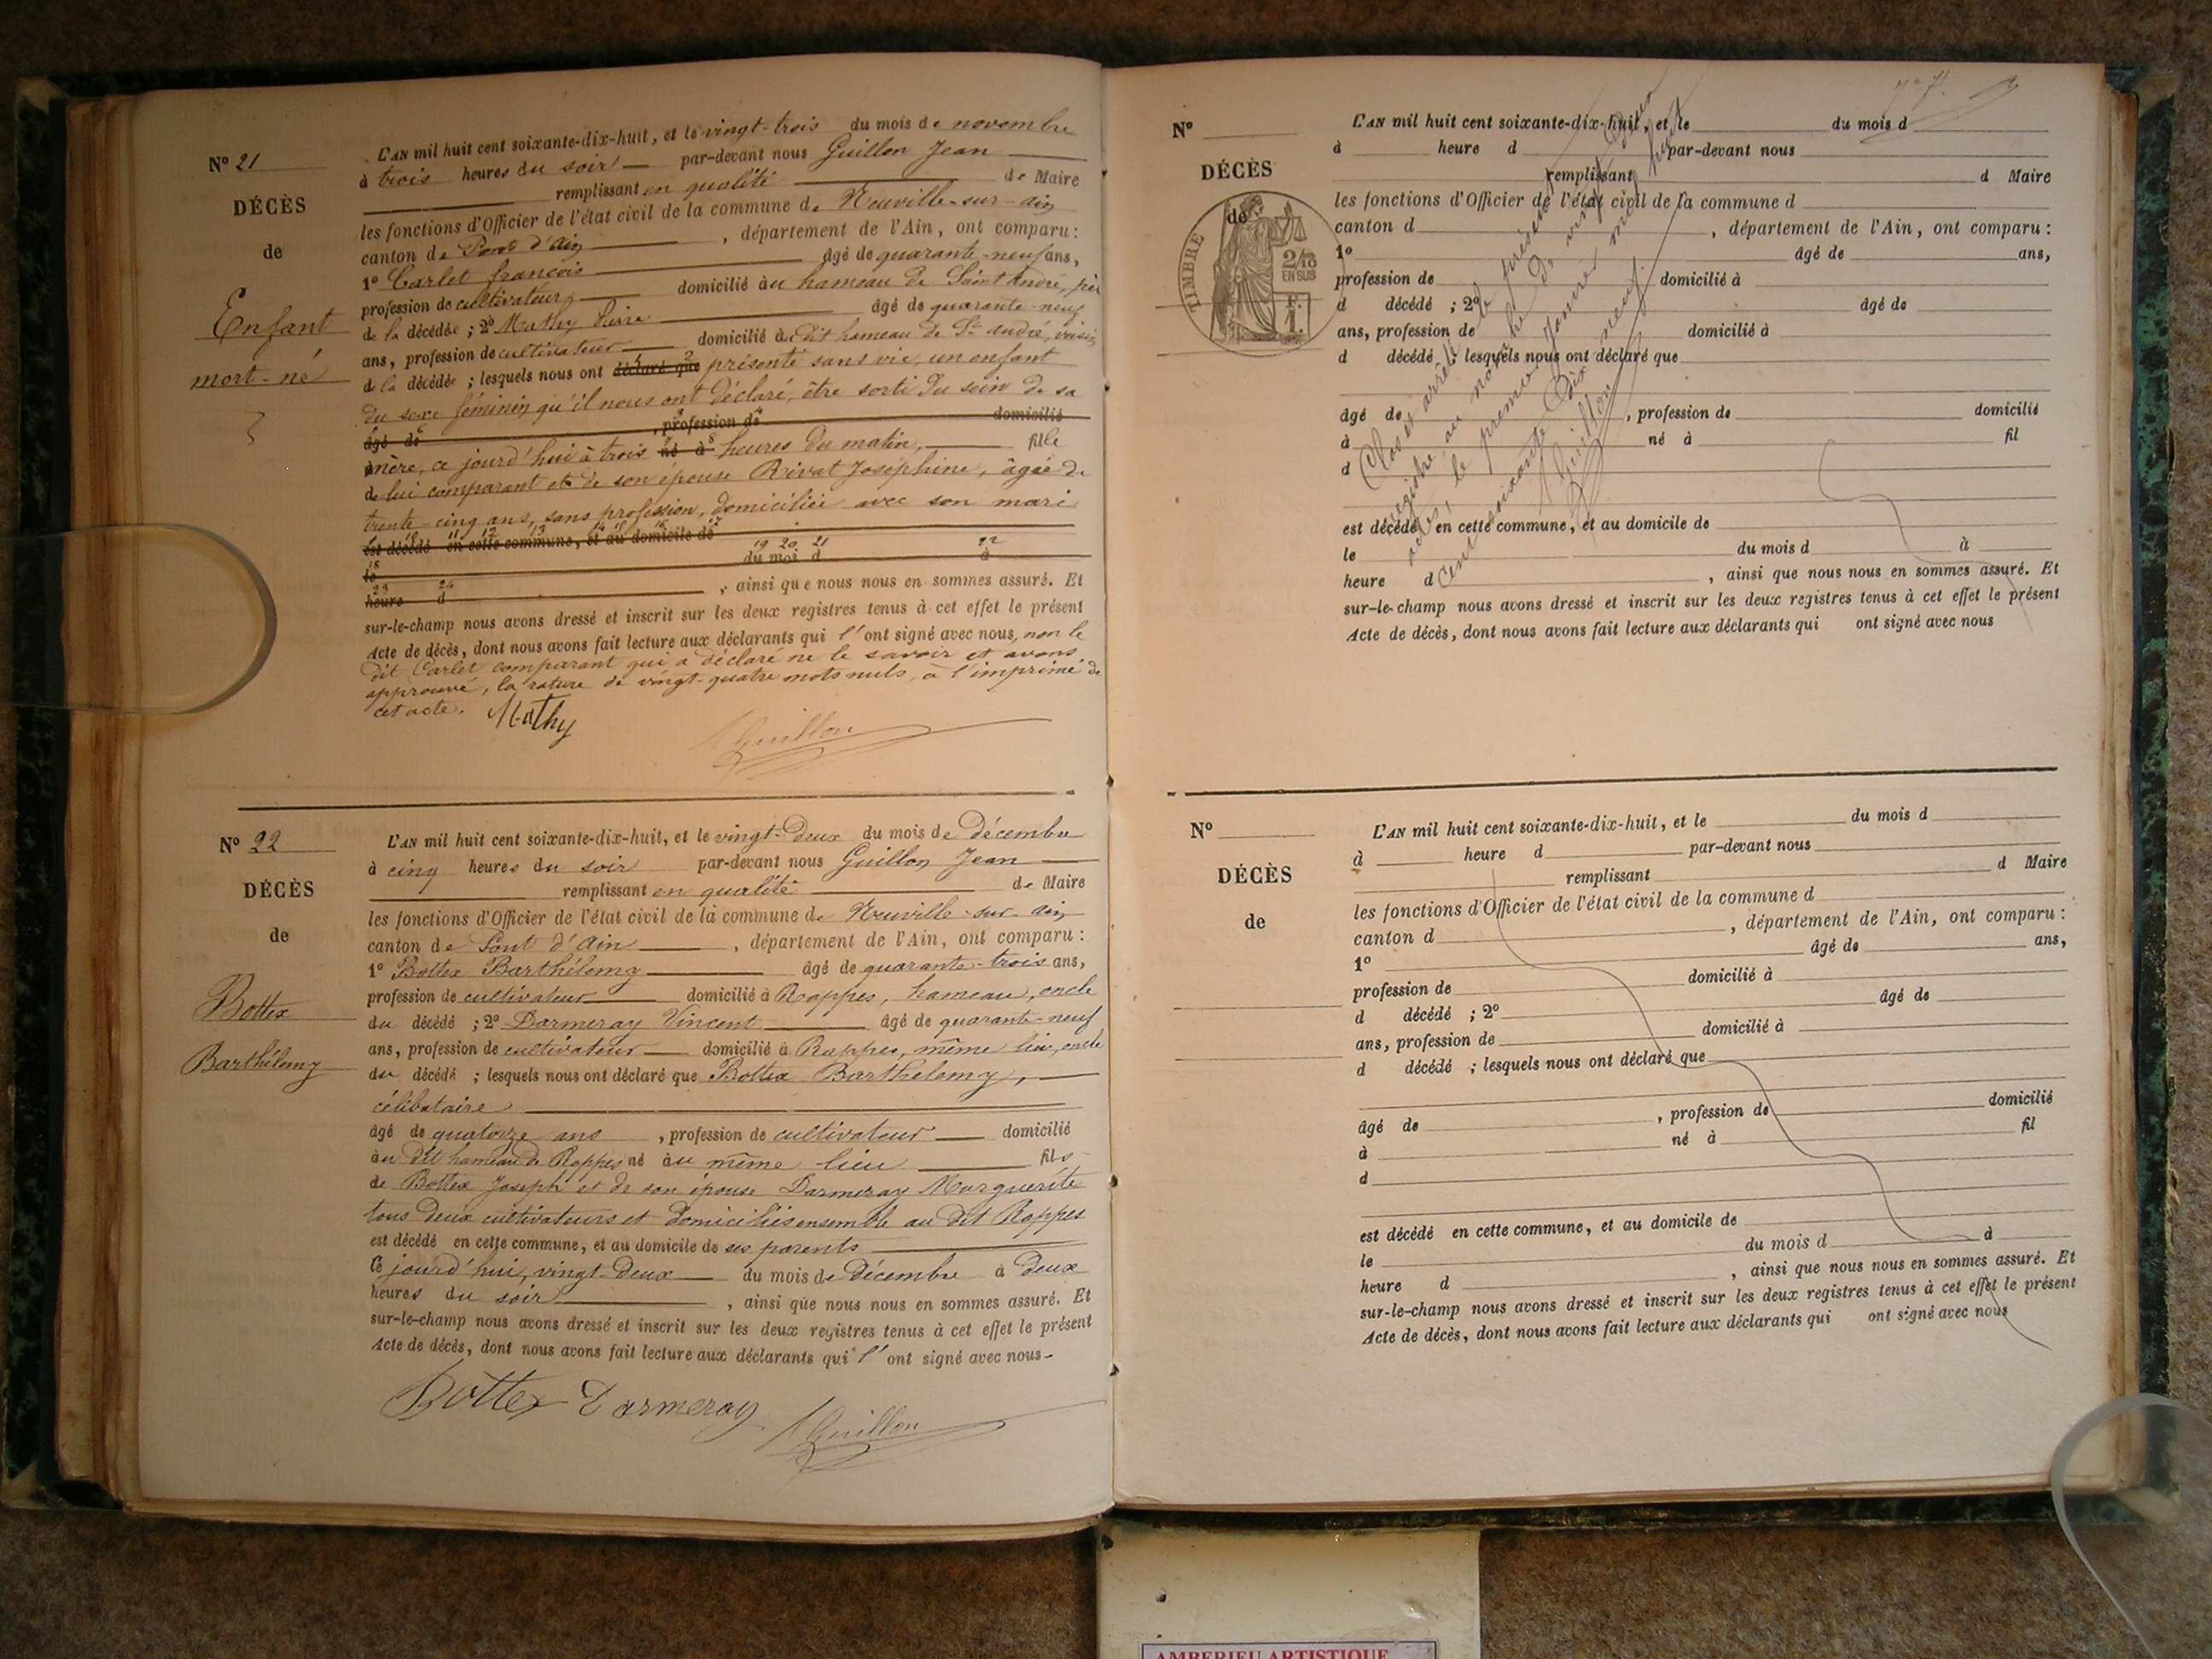 N° 21
DÉCÈS
de
Enfant
mort-né
L'AN mil huit cent soixante-dix-huit, et le vingt-trois du mois de novembre
à trois heures du soir par-devant nous Guillon Jean
remplissant en qualité de Maire
les fonctions d'Officier de l'état civil de la commune de Neuville-sur-ain
canton de Pont d'ain, département de l'Ain, ont comparu :
1° Carlet françois âgé de quarante-neuf ans,
profession de cultivateur domicilié au hameau de Saint André, père
de la décédée ; 2° Mathy Pierre âgé de quarante-neuf
ans, profession de cultivateur domicilié au dit hameau de St andré, voisin
de la décédée ; lesquels nous ont déclaré que présenté sans vie, un enfant
du sexe féminin qu'il nous ont déclaré, être sorti du sein de sa
âgé de , profession de domicilié
mère, ce jourd'hui à trois né à heures du matin, fille
de lui comparant et de son épouse Rivat Joséphine, âgée de
trente-cinq ans, sans profession, domiciliée avec son mari
est décédé en cette commune, et au domicile de
le du moi d à
heure d , ainsi que nous nous en sommes assuré. Et
sur-le-champ nous avons dressé et inscrit sur les deux registres tenus à cet effet le présent
Acte de décès, dont nous avons fait lecture aux déclarants qui l'ont signé avec nous, non le
dit Carlet comparant qui a déclaré ne le savoir et avons
approuvé, la rature de vingt-quatre mots nuls, à l'imprimé de
cet acte. Mathy
Guillon
N° 22
DÉCÈS
de
Bottex
Barthélemy
L'AN mil huit cent soixante-dix-huit, et le vingt-deux du mois de décembre
à cinq heures du soir par-devant nous Guillon Jean
remplissant en qualité de Maire
les fonctions d'Officier de l'état civil de la commune de Neuville-sur-ain
canton de Pont d'ain, département de l'Ain, ont comparu :
1° Bottex Barthélemy âgé de quarante-trois ans,
profession de cultivateur domicilié à Rappes, hameau, oncle
du décédé ; 2° Darmeray Vincent âgé de quarante-neuf
ans, profession de cultivateur domicilié à Rappes, même lieu, oncle
du décédé ; lesquels nous ont déclaré que Bottex Barthelemy,
célibataire
âgé de quatorze ans, profession de cultivateur domicilié
au dit hameau de Rappes né au même lieu fils
de Bottex Joseph et de son épouse Darmeray Marguerite
tous deux cultivateurs et domiciliés ensemble au dit Rappes
est décédé en cette commune, et au domicile de ses parents
ce jourd'hui, vingt-deux du mois de décembre à deux
heures du soir, ainsi que nous nous en sommes assuré. Et
sur-le-champ nous avons dressé et inscrit sur les deux registres tenus à cet effet le présent
Acte de décès, dont nous avons fait lecture aux déclarants qui l'ont signé avec nous
Bottex Darmeray Guillon
N°
DÉCÈS
de
TIMBRE
2/10
EN SUS
F.
1.
L'AN mil huit cent soixante-dix-huit, et le du mois d
à heure d par-devant nous
remplissant d Maire
les fonctions d'Officier de l'état civil de la commune d
canton d , département de l'Ain, ont comparu :
1° âgé de ans,
profession de domicilié à
d décédé ; 2° âgé de
ans, profession de domicilié à
d décédé ; lesquels nous ont déclaré que
âgé de , profession de domicilié
à né à fil
d
est décédé en cette commune, et au domicile de
le du mois d à
heure d , ainsi que nous nous en sommes assuré. Et
sur-le-champ nous avons dressé et inscrit sur les deux registres tenus à cet effet le présent
Acte de décès, dont nous avons fait lecture aux déclarants qui ont signé avec nous
Clos et arrêté le présent
registre, au nombre de vingt-deux
actes, le premier janvier mil huit
cent soixante-dix-neuf.
Guillon
N°
DÉCÈS
de
L'AN mil huit cent soixante-dix-huit, et le du mois d
à heure d par-devant nous
remplissant d Maire
les fonctions d'Officier de l'état civil de la commune d
canton d , département de l'Ain, ont comparu :
1° âgé de ans,
profession de domicilié à
d décédé ; 2° âgé de
ans, profession de domicilié à
d décédé ; lesquels nous ont déclaré que
âgé de , profession de domicilié
à né à fil
d
est décédé en cette commune, et au domicile de
le du mois d à
heure d , ainsi que nous nous en sommes assuré. Et
sur-le-champ nous avons dressé et inscrit sur les deux registres tenus à cet effet le présent
Acte de décès, dont nous avons fait lecture aux déclarants qui ont signé avec nous
AMBERIEU ARTISTIQUE